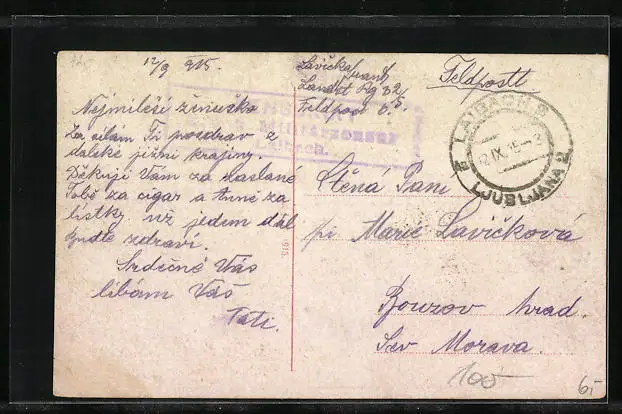 12/9 915.
Nejmileší ženuško
Zasílám Ti pozdrav z
dalské jižní krajiny.
Děkuji Vám za zaslané
Tobě za cigar a Anně za
lístky. už jedem dál
Buďte zdraví.
Srdečně Vás
líbám Váš
Tati.
Lavička Franz
Landst. 32/5
Feldpost 6.
Feldpostt
Militärzensur
Laibach.
LAIBACH 2
12 IX 15
2 LJUBLJANA 2
Ctěná Paní
pí Marie Lavičková
Bouzov hrad.
Sev Morava.
1915
100-
6,-